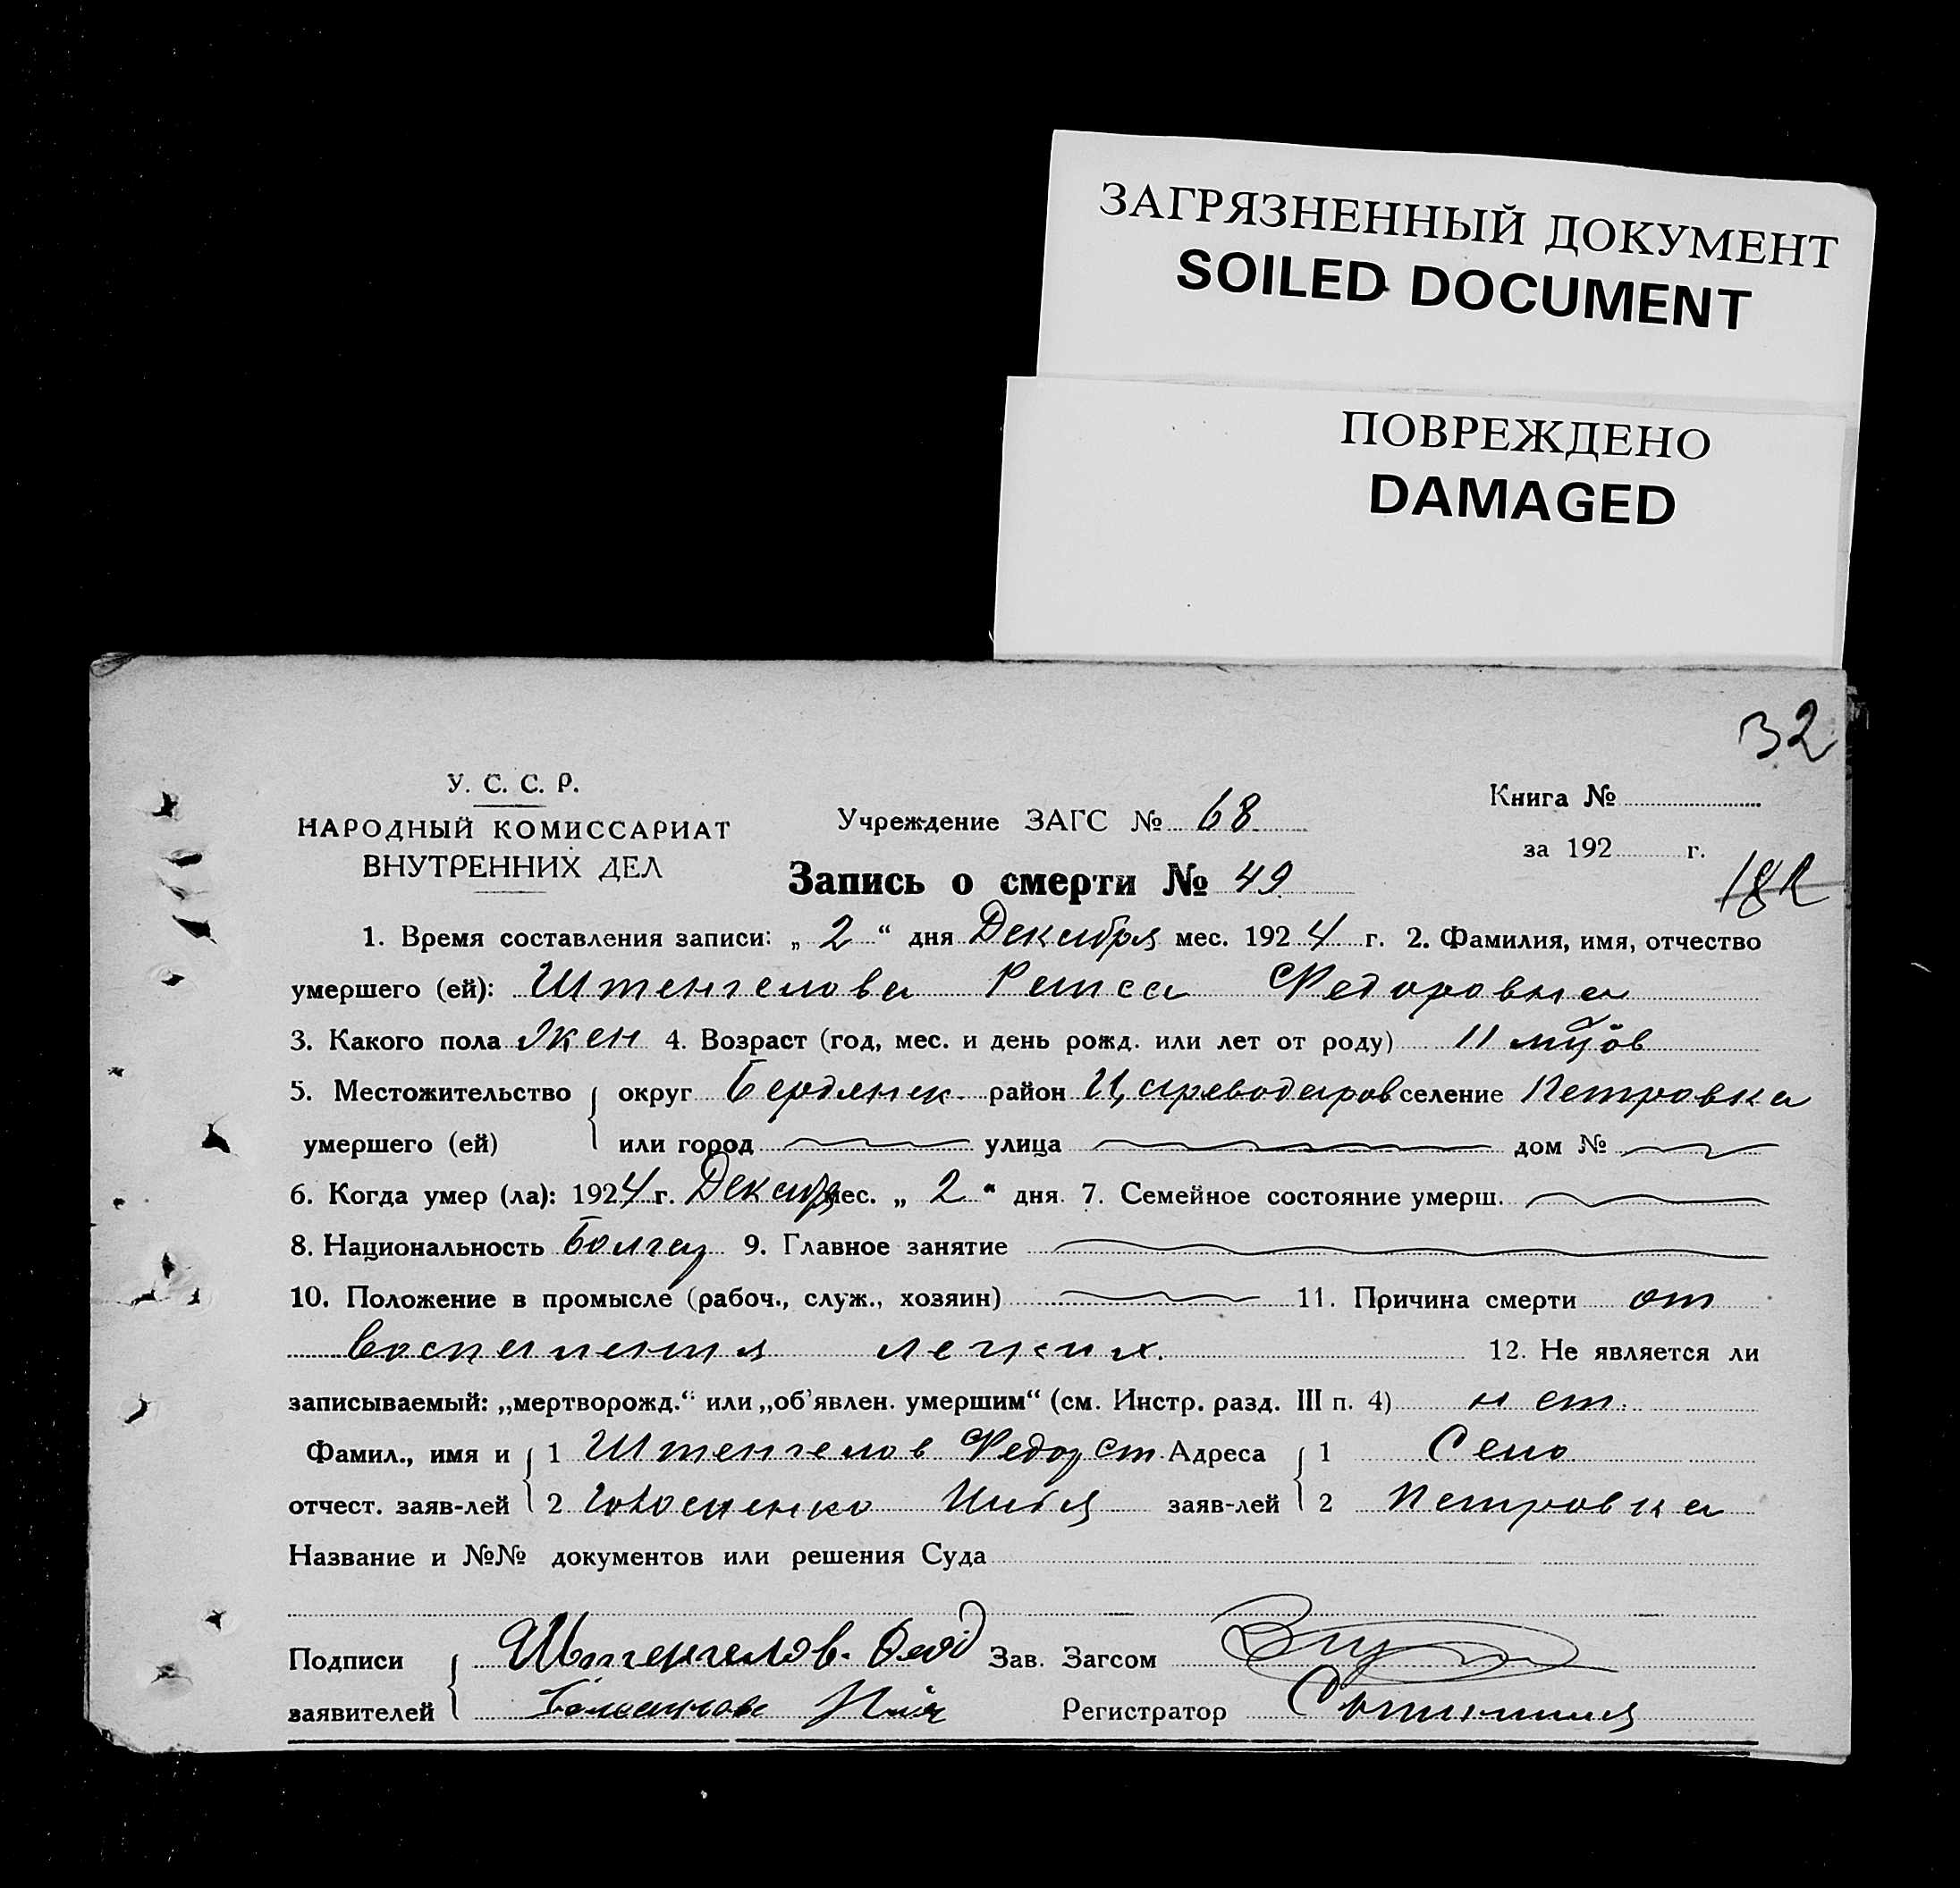 ЗАГРЯЗНЕННЫЙ ДОКУМЕНТ
SOILED DOCUMENT
ПОВРЕЖДЕНО
DAMAGED
32
У. С. С. Р.
НАРОДНЫЙ КОМИССАРИАТ
ВНУТРЕННИХ ДЕЛ
Учреждение ЗАГС № 68
Запись о смерти № 49
Книга №
за 192 г.
1. Время составления записи: „ 2 “ дня Декабря мес. 1924 г. 2. Фамилия, имя, отчество
умершего (ей): Штенгелова Раиса Федоровна
3. Какого пола Жен 4. Возраст (год, мес. и день рожд. или лет от роду) 11 м-цов
5. Местожительство { округ Бердянск. район Цареводаров селение Петровка
умершего (ей) или город улица дом №
6. Когда умер (ла): 1924 г. Декабря мес. „ 2 “ дня. 7. Семейное состояние умерш.
8. Национальность Болгар 9. Главное занятие
10. Положение в промысле (рабоч., служ., хозяин) 11. Причина смерти от
воспаления легких. 12. Не является ли
записываемый: „мертворожд.“ или „об'явлен. умершим“ (см. Инстр. разд. III п. 4) нет.
Фамил., имя и { 1 Штенгелов Федор Ст. Адреса { 1 Село
отчест. заяв-лей 2 Илья заяв-лей 2 Петровка
Название и №№ документов или решения Суда
Подписи { Штенгелов. Фед Зав. Загсом
заявителей Илия Регистратор